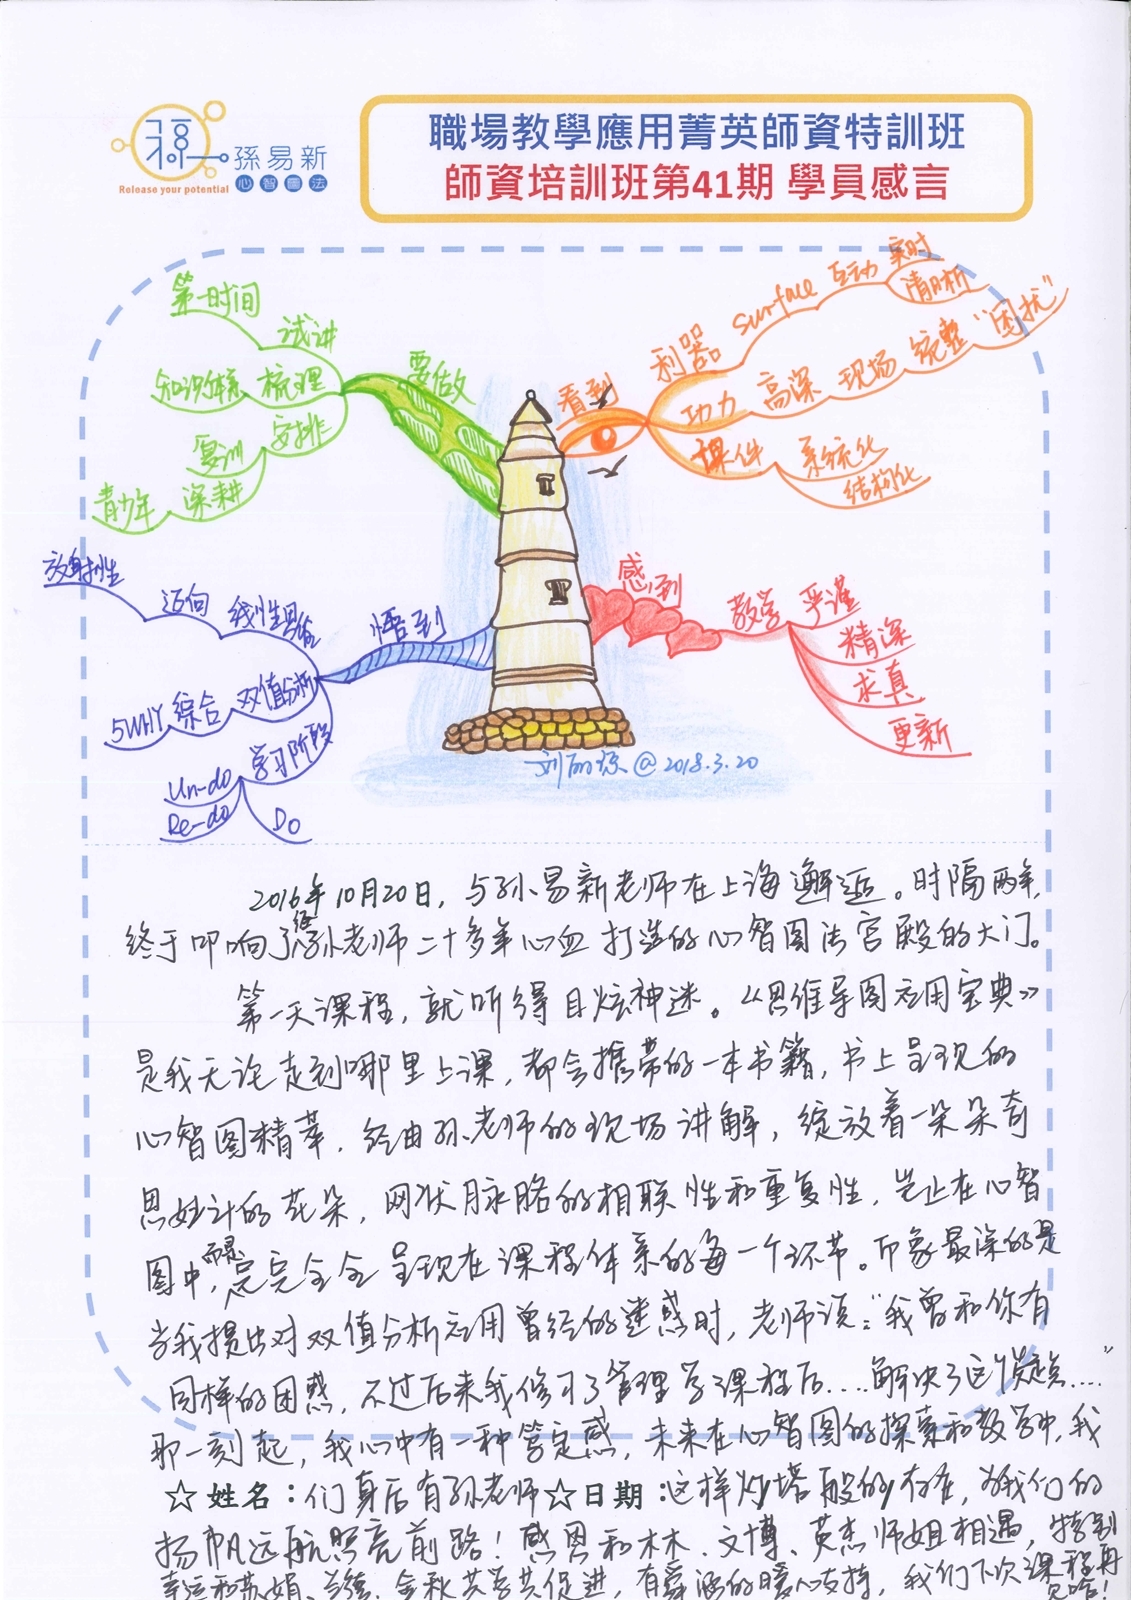 孫易新
心智圖法
Release your potential
職場教學應用菁英師資特訓班
師資培訓班第41期 學員感言
第一时间
试讲
知识体系 梳理
安排
复训
青少年 深耕
要做
看到
利器 surface 互动 实时
清晰
功力 高深 现场 统整 "困扰"
课件 系统化
结构化
感到
教学 严谨
精深
求真
更新
悟到
放射性 迈向 线性思维
5WHY 综合 双值分析
学习阶段
Un-do
Re-do
Do
@2018.3.20
2016年10月20日，与孙易新老师在上海邂逅。时隔两年，
终于叩响了经孙老师二十多年心血打造的心智图法宫殿的大门。
第一天课程，就听得目炫神迷。《思维导图应用宝典》
是我无论走到哪里上课，都会携带的一本书籍，书上呈现的
心智图精萃，经由孙老师的现场讲解，绽放着一朵朵奇
思妙计的花朵，网状脉胳的相联性和重复性，岂止在心智
图中，而是完完全全呈现在课程体系的每一个环节。印象最深的是
当我提出对双值分析应用曾经的迷惑时，老师说："我曾和你有
同样的困惑，不过后来我修习了管理学课程后....解决了这疑点...."
那一刻起，我心中有一种笃定感，未来在心智图的探索和教学中，我
☆姓名：们身后有孙老师☆日期：这样灯塔般的存在，为我们的
扬帆远航照亮前路！感恩和木木、文博、英杰师姐相遇，特别
幸运和 金秋共学共促进，有 的暖心支持，我们下次课程再
见哈！